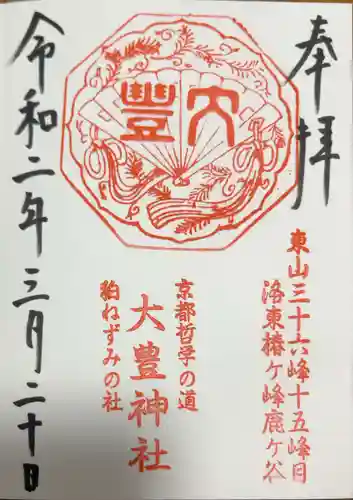 奉拝
東山三十六峰十五峰目
洛東椿ケ峰鹿ケ谷
大豊
京都哲学の道
大豊神社
狛ねずみの社
令和二年三月二十日